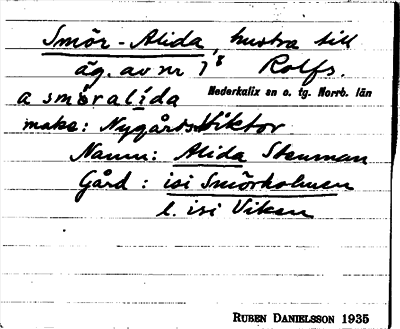 Smör-Alida, hustra till
äg. av nr 7⁸ Rolfs.
a smöralida Nederkalix sn o. tg. Norrb. län
make: Nygårdsviktor
Namn: Alida Stenman
Gård: isi Smörholmen
l. isi Viken
RUBEN DANIELSSON 1935